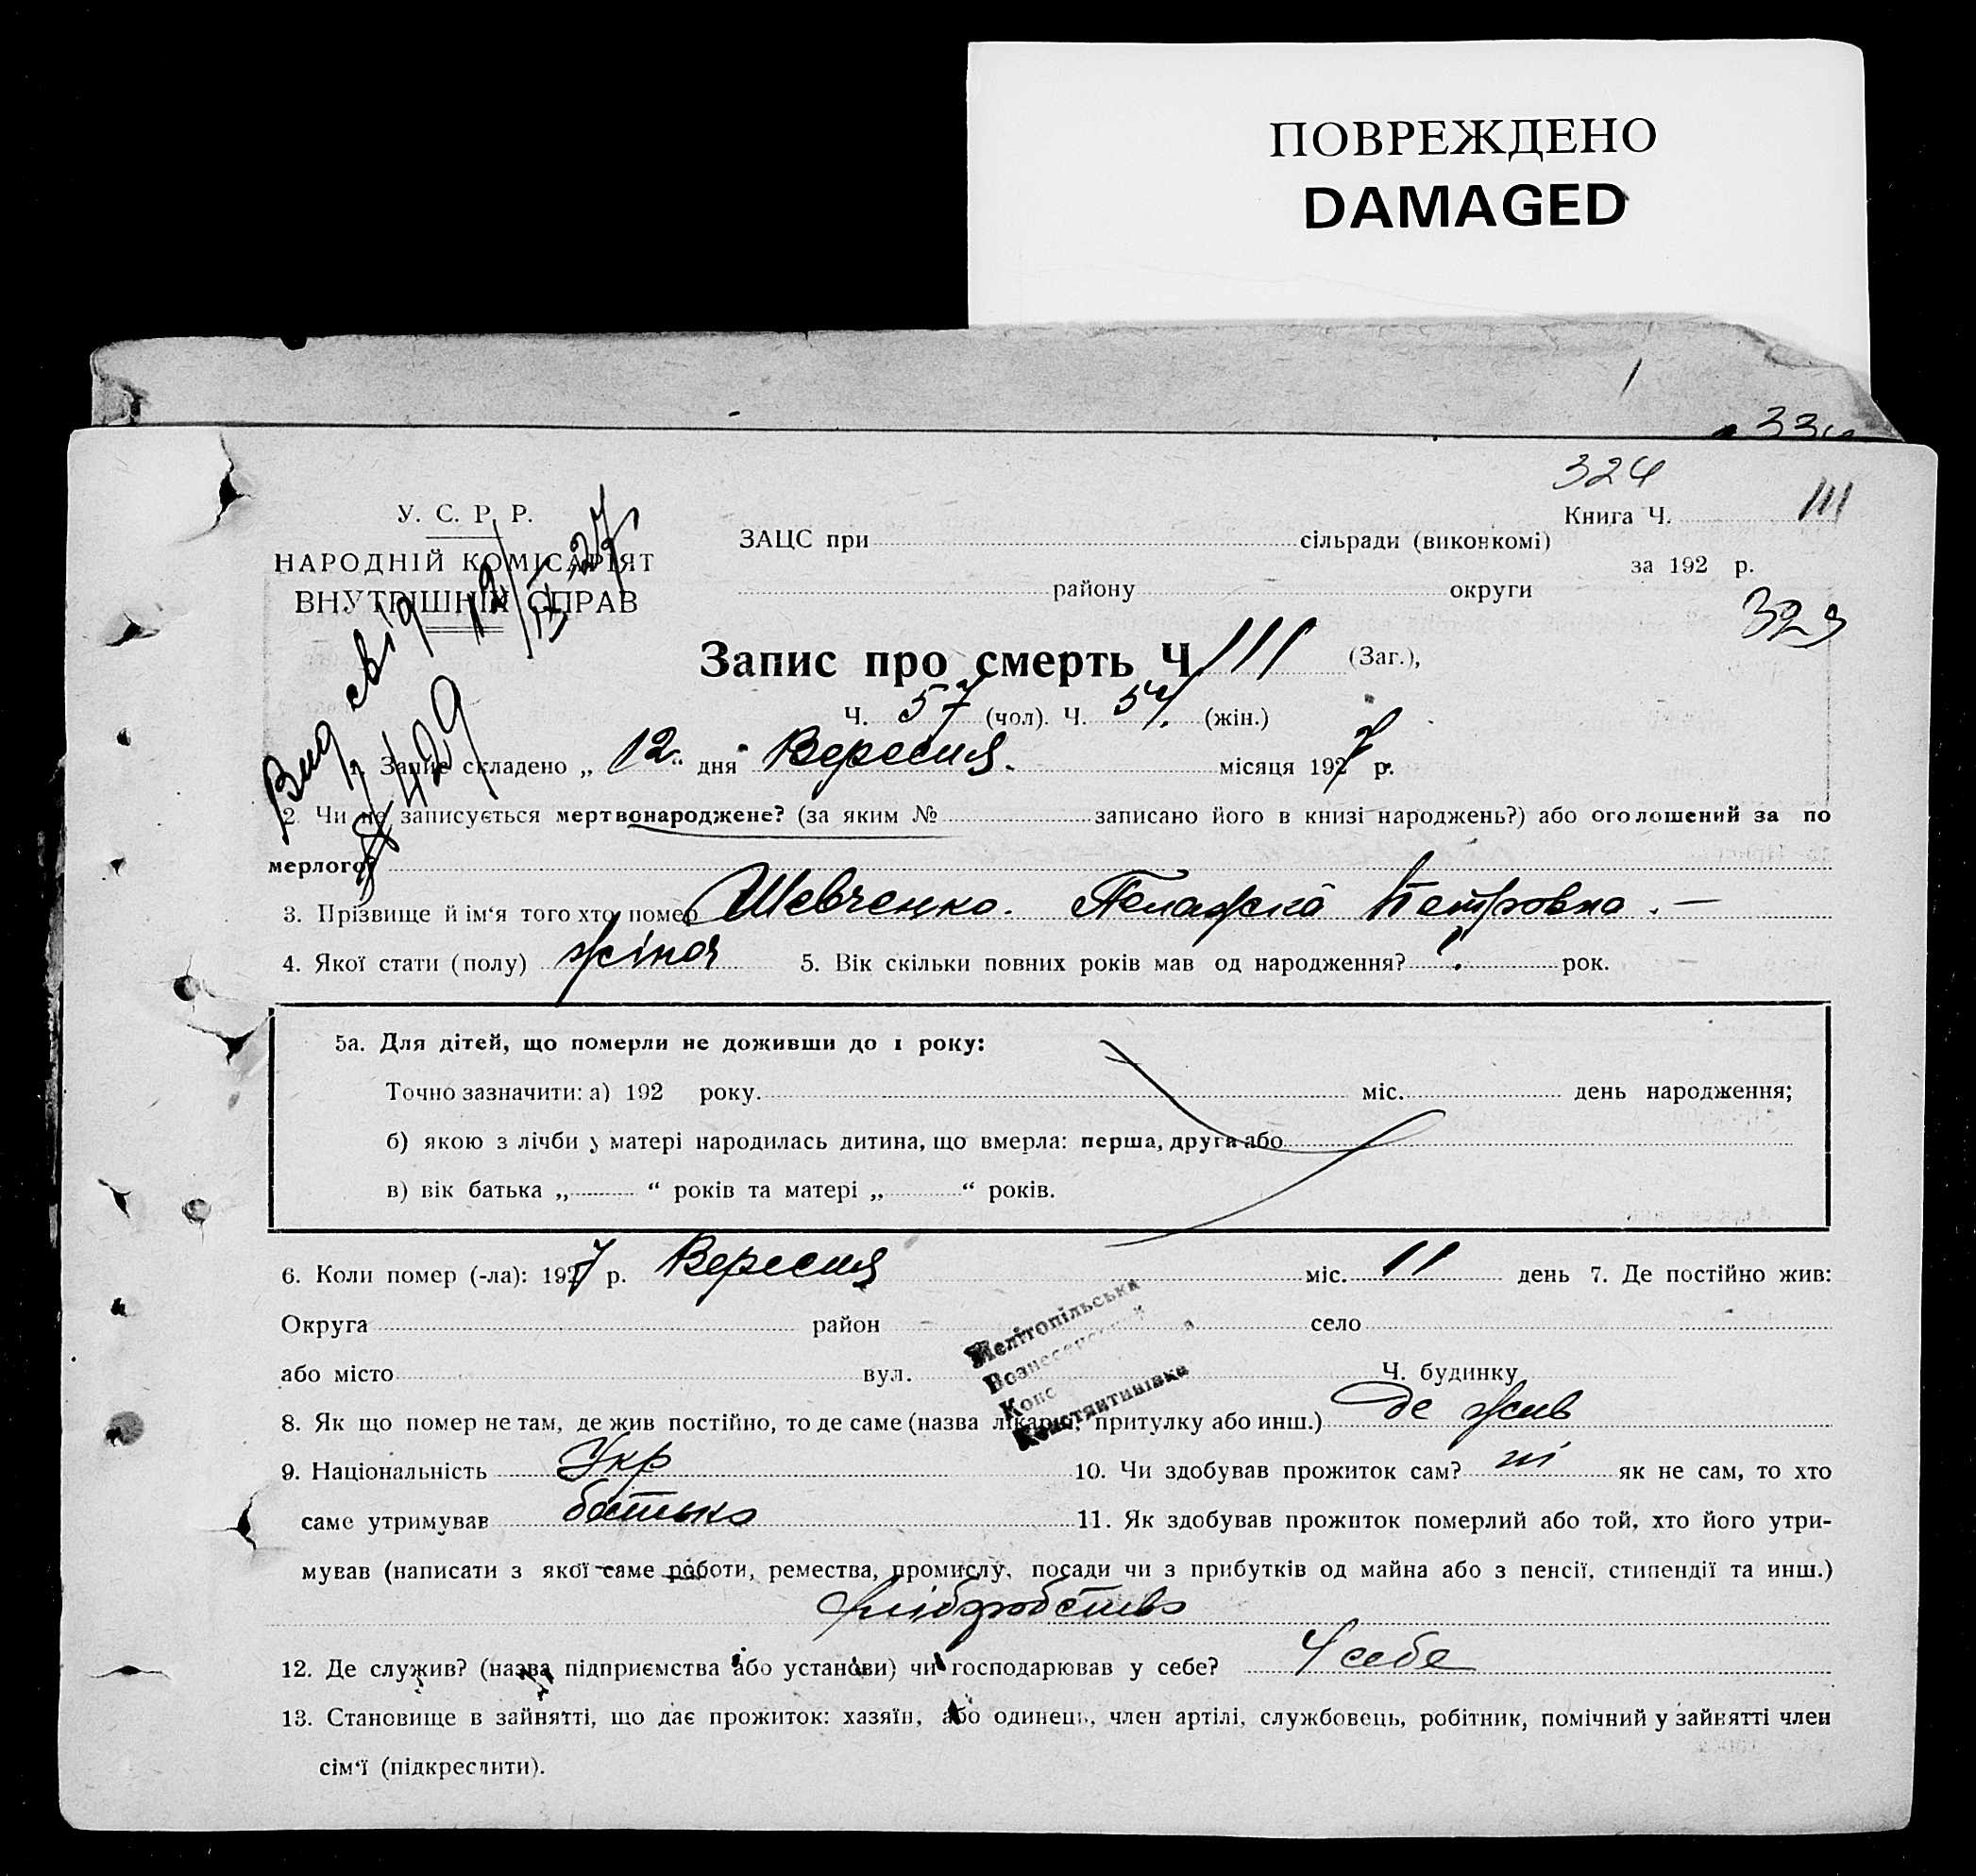 ПОВРЕЖДЕНО
DAMAGED
324
У. С. Р. Р.
Книга Ч. 111
ЗАЦС при сільради (виконкомі)
НАРОДНІЙ КОМІСАРІЯТ
за 192 р.
району округи
ВНУТРІШНІХ СПРАВ
323
Вид свід 12/IX 27
№ 429
Запис про смерть Ч. 111 (Заг.),
Ч. 57 (чол). Ч. 54 (жін.)
1. Запис складено „ 12 “ дня Вересня місяця 1927 р.
2 Чи не записується мертвонароджене? (за яким № записано його в книзі народжень?) або оголошений за по
мерлого?
3. Прізвище й ім'я того хто помер Шевченко. Пелагея Петровна. —
4. Якої стати (полу) жіноч 5. Вік скільки повних років мав од народження? рок.
5а. Для дітей, що померли не доживши до 1 року:
Точно зазначити: а) 192 року. міс. день народження;
б) якою з лічби у матері народилась дитина, що вмерла: перша, друга або
в) вік батька „ “ років та матері „ “ років.
6. Коли помер (-ла): 1927 р. Вересня міс. 11 день 7. Де постійно жив:
Округа район село
Мелітопільська
або місто вул. Ч. будинку
Костянтинівка
8. Як що помер не там, де жив постійно, то де саме (назва лікарні, притулку або инш.) де жив
9. Національність Укр 10. Чи здобував прожиток сам? ні як не сам, то хто
саме утримував батько 11. Як здобував прожиток померлий або той, хто його утри-
мував (написати з якої саме роботи, ремества, промислу, посади чи з прибутків од майна або з пенсії, стипендії та инш.)
хліборобство
12. Де служив? (назва підприємства або установи) чи господарював у себе? У себе
13. Становище в зайнятті, що дає прожиток: хазяїн, або одинець, член артілі, службовець, робітник, помічний у зайнятті член
сім'ї (підкреслити).